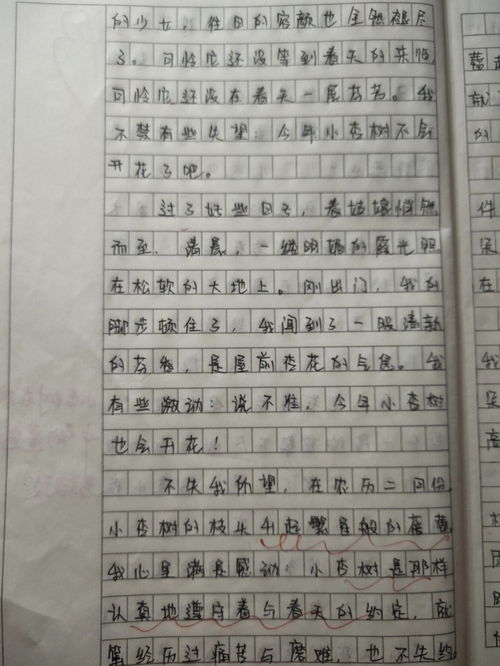 的少女，往日的容颜也全然褪尽
了。可怜它还没等到春天的来临，
可怜它还没在春天一展芳茗。我
不禁有些失望：今年小杏树不会
开花了吧。
过了好些日子，春姑娘悄然
而至。清晨，一缕明媚的霞光照
在松软的大地上。刚出门，我的
脚步顿住了，我闻到了一股清新
的芳香，是屋前杏花的气息。我
有些激动：说不准，今年小杏树
也会开花！
不失我所望，在农历二月份，
小杏树的枝头升起繁星般的蓓蕾，
我心里满是感动：小杏树是那样
认真地遵守着与春天的约定，就
算经历过痛苦与磨难，也不失约。
蓓
就
件
朵
在
我
朵
高